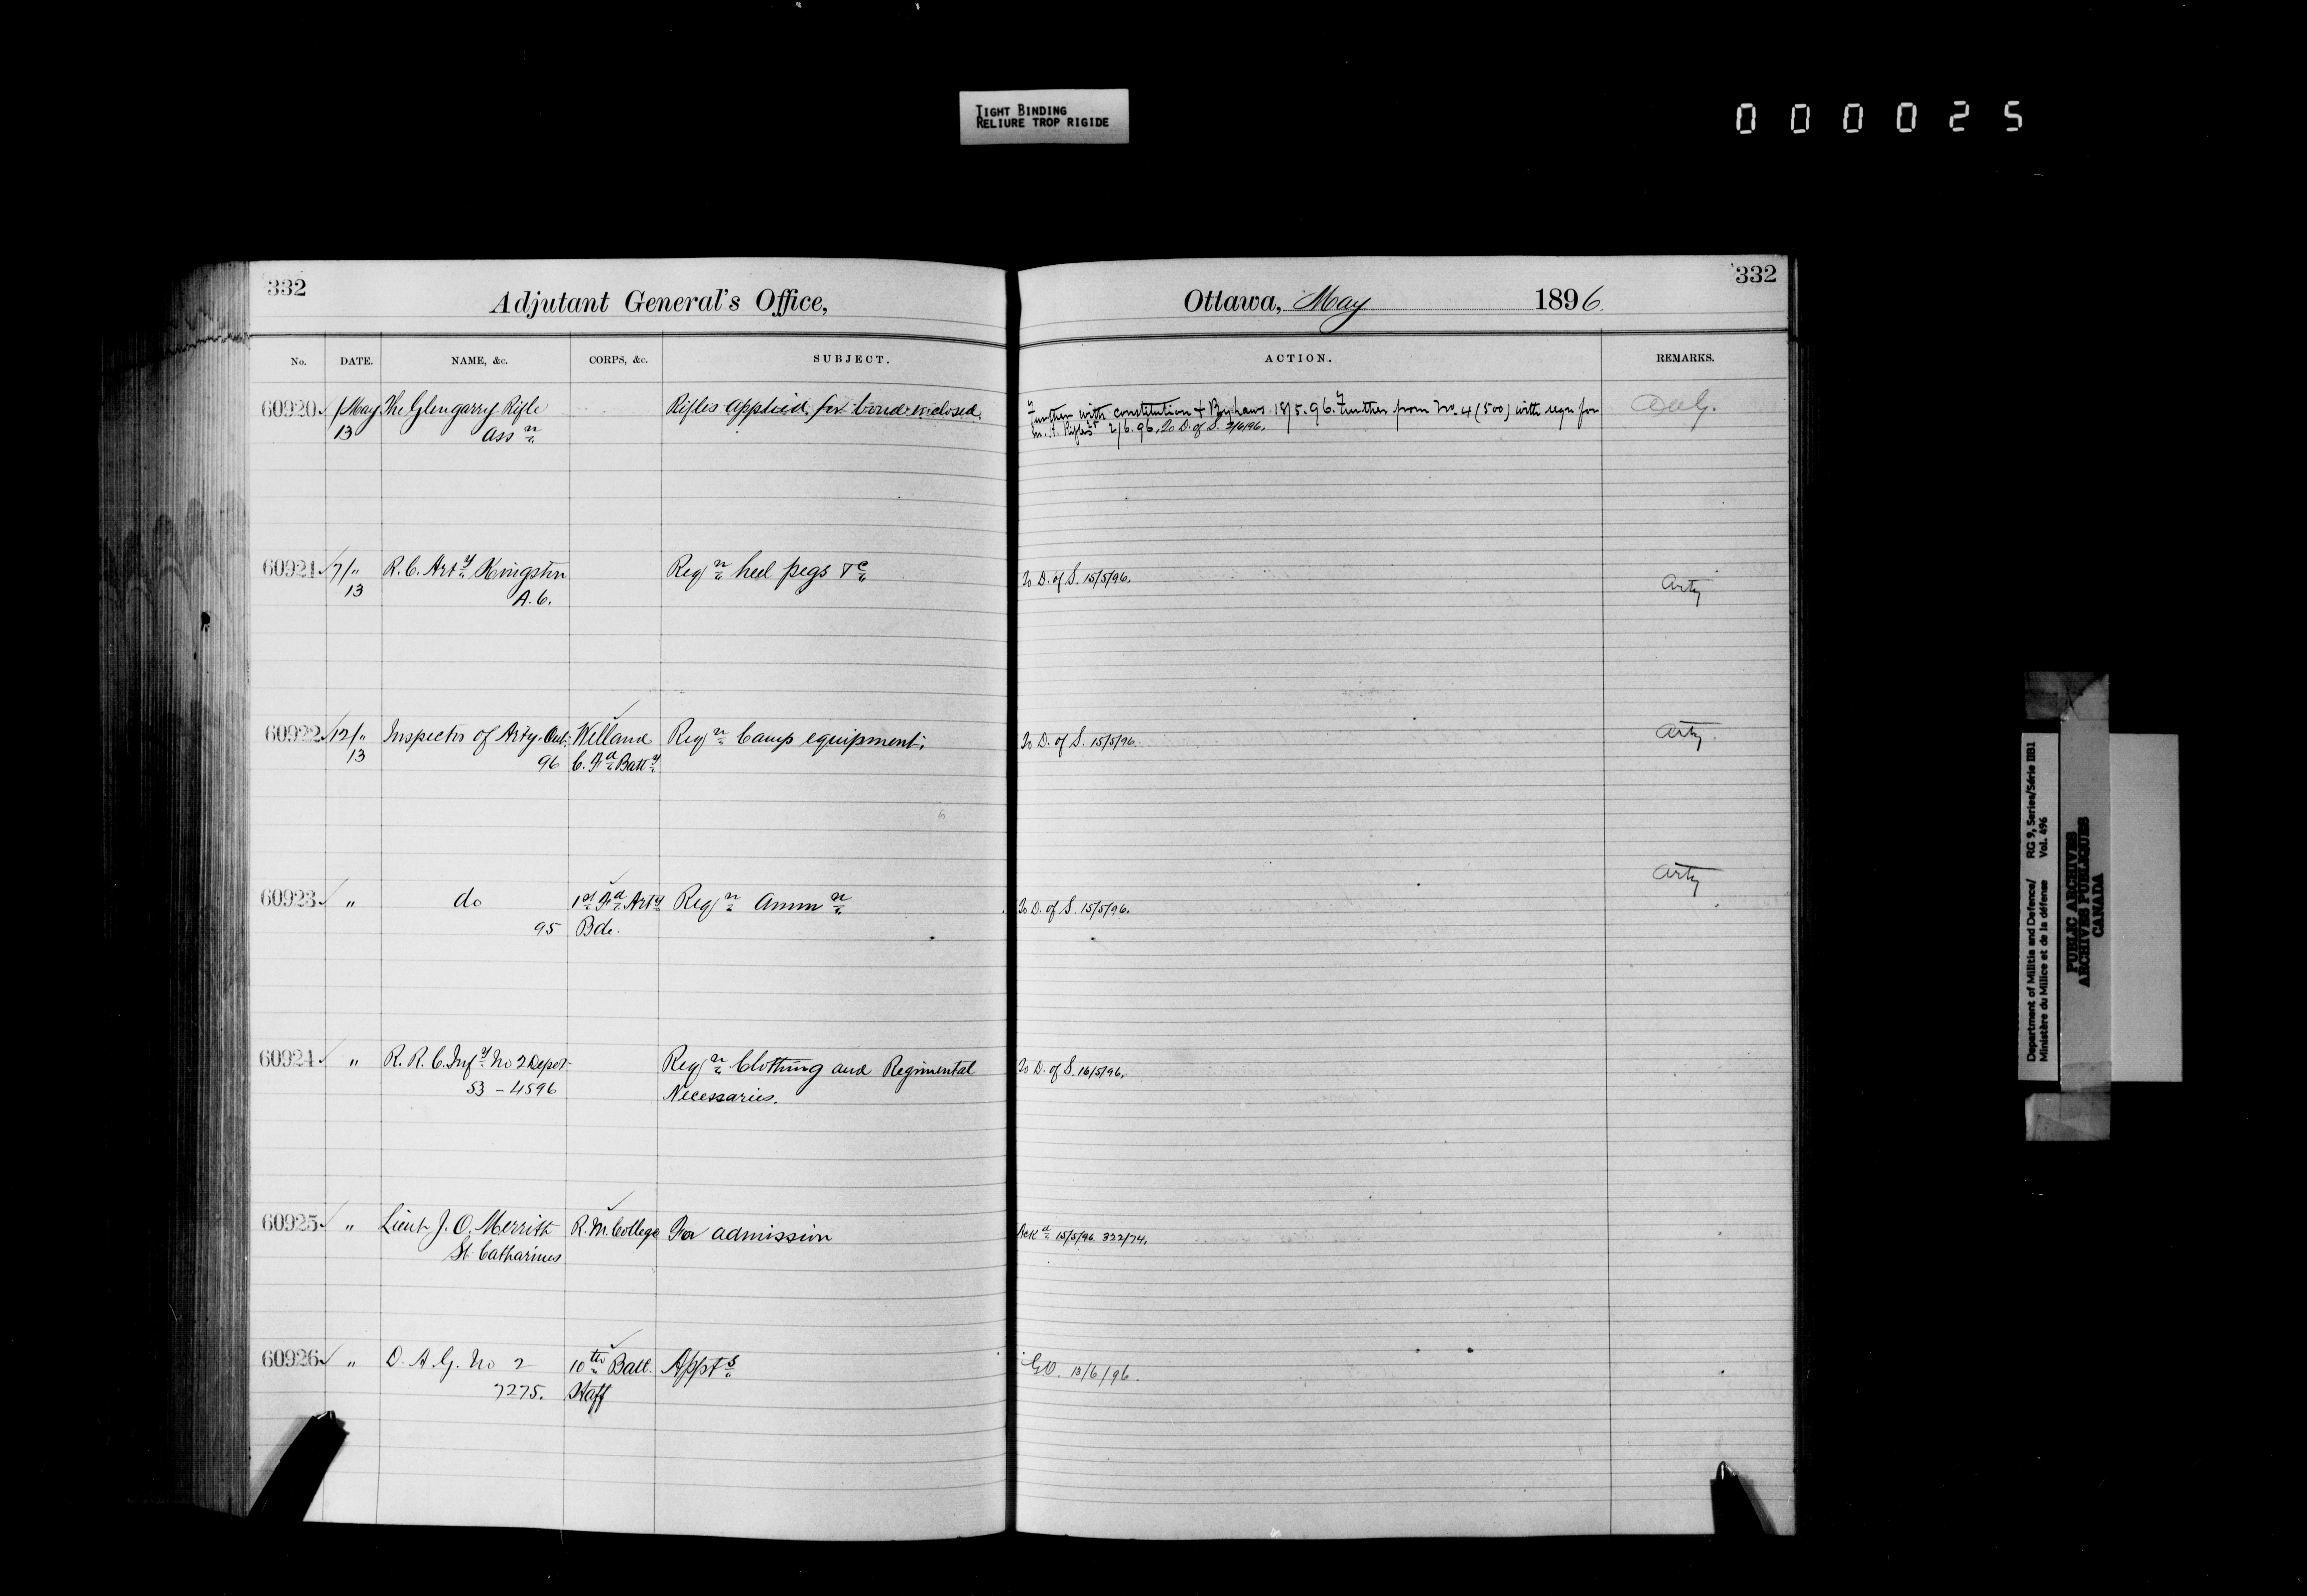 TIGHT BINDING
RELIURE TROP RIGIDE
000025
332
Adjutant General's Office,
Ottawa, May 1896.
332
No. DATE. NAME, &c. CORPS, &c. SUBJECT. ACTION. REMARKS.
60920 1/May The Glengarry Rifle Rifles applied for bond enclosed. Further with constitution + By Laws 18/5.96. Further from No. 4 (500) with reqn for
13 Assn Rifles 2/6.96. To D. of S. 3/6/96.
60921 7/" R.C. Arty Kingston Reqn heel pegs &c To D. of S. 15/5/96. Arty
13 A.C.
60922 12/" Inspector of Arty. Ont. Welland Reqn Camp equipment. To D. of S. 15/5/96. Arty
13 96 C. Fd Batty
60923 " do 1st Fd Arty Reqn Ammn To D. of S. 15/5/96. Arty
95 Bde.
60924 " R.R.C. Infy No 2 Depot Reqn Clothing and Regimental To D. of S. 16/5/96.
53 - 4596 Necessaries.
60925 " Lieut J. O. Merritt R.M. College For admission Ackd 15/5/96 322/74.
St. Catharines
60926 " D.A.G. No 2 10th Batt. Appts G.O. 13/6/96.
7275. Staff
Department of Militia and Defence/ RG 9, Series/Série IIB1
Ministère du Milice et de la défense Vol. 496
PUBLIC ARCHIVES
ARCHIVES PUBLIQUES
CANADA